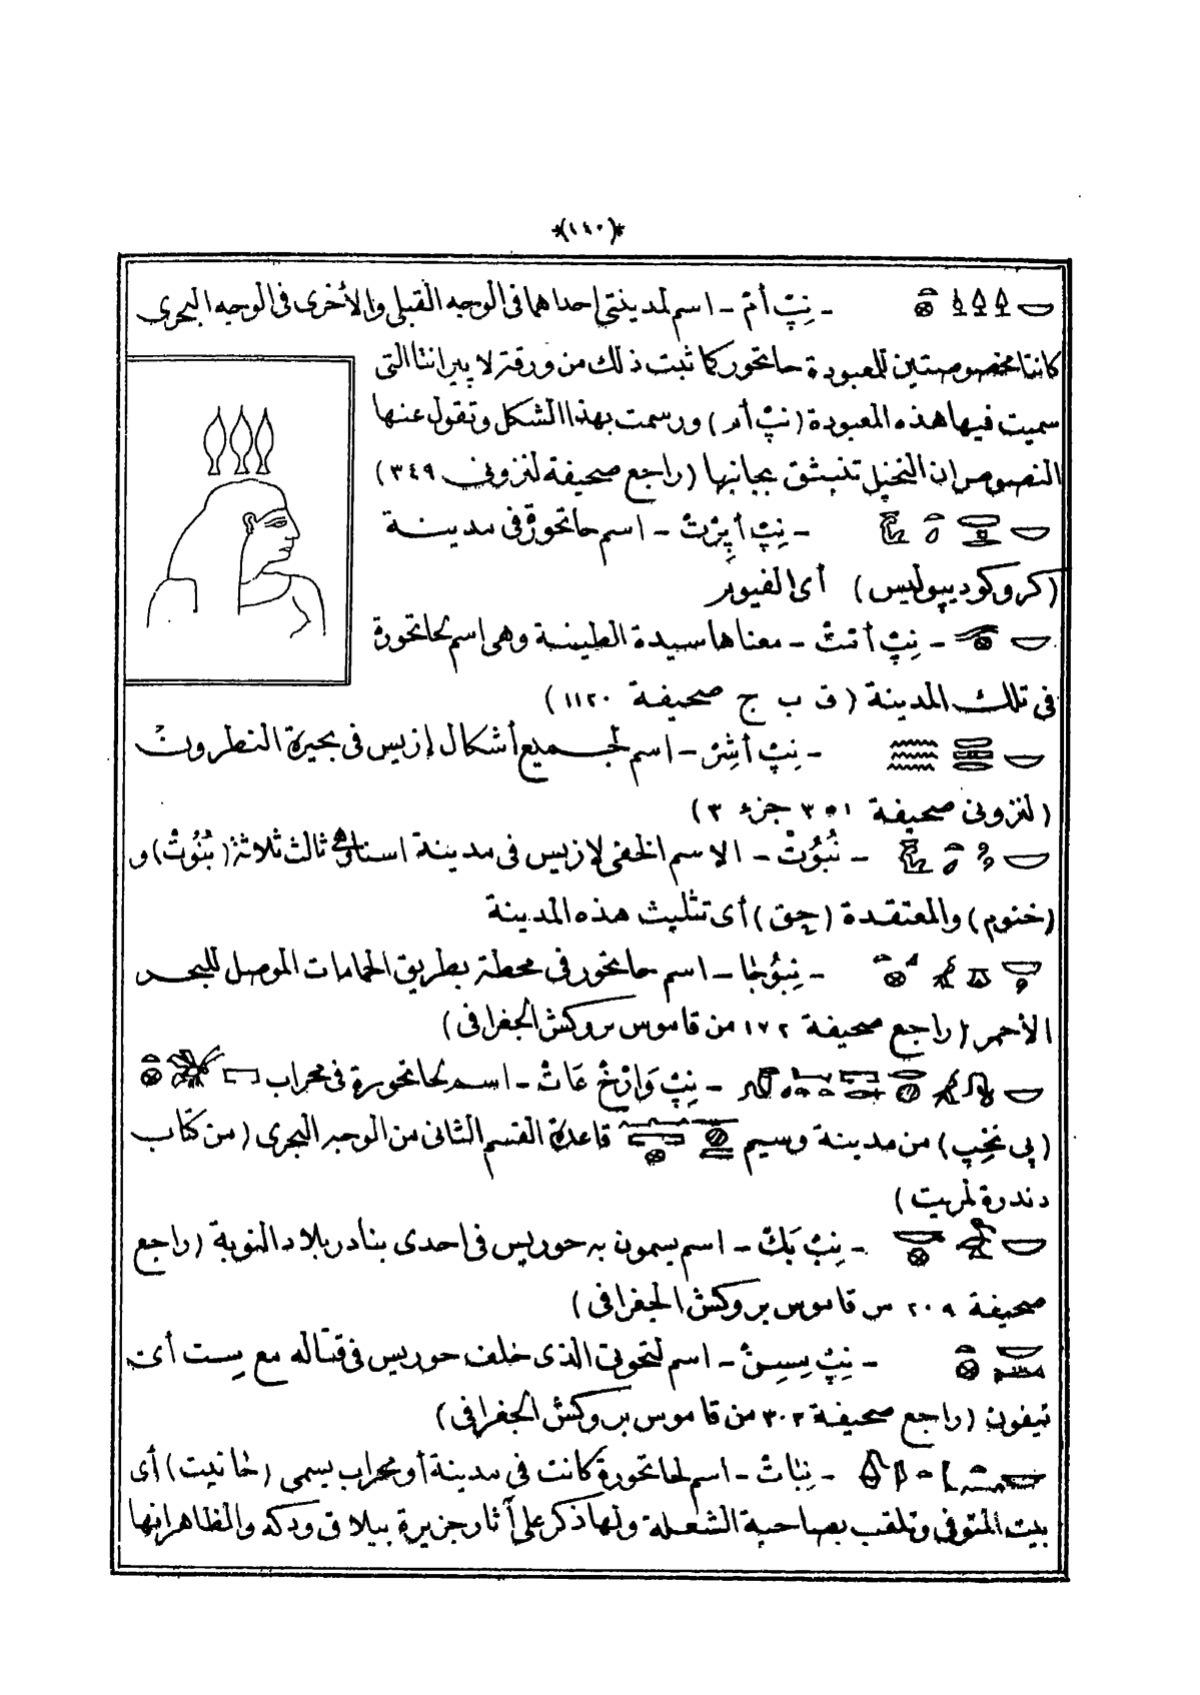 *(١٤٠)*
- نِبْ أَمْ - اسم لمدينتي إحداهما في الوجه القبلي والأخرى في الوجه البحرى
كانتا مخصوصتين للعبودة حاتحور كما ثبت ذلك من ورقة لا بيرانتا التى
سميت فيها هذه المعبودة (نبْ أم) ورسمت بهذا الشكل وتقول عنها
النصوص ان النخيل تنبثق بجانبها (راجع صحيفة لنزونى ٣٤٩)
- نِبْ أَبِرْتْ - اسم حاتحورة فى مدينة
(كروكوديبوليس) أى الفيوم
- نِبْ أَنتْ - معناها سيدة الطينة وهى اسم لحاتحورة
فى تلك المدينة (ق ب ج صحيفة ١١٢٠)
- نِبْ أَشِرْ - اسم لجميع أشكال إزيس فى بحيرة النطرون
(لنزونى صحيفة ٣٥١ جزء ٣)
- نُبُوُتْ - الاسم الخفى لازيس فى مدينة اسنا وهى ثالث ثلاثة (نُبُوُتْ) و
(خنوم) والمعتقدة (حِق) أى تثليث هذه المدينة
- نِبوُخَا - اسم حاتحور فى محطة بطريق الحمامات الموصل للبحر
الأحمر (راجع صحيفة ١٧٢ من قاموس بروكش الجغرافى)
- نِبْ وَارْخْ عَاتْ - اسم لحاتحورة فى محراب
(پى نخِب) من مدينة وسيم قاعدة القسم الثانى من الوجه البحرى (من كتاب
دندرة لمريت)
- نِبْ بَكْ - اسم يسمون به حوريس فى احدى بنادر بلاد النوبة (راجع
صحيفة ٢٠٩ من قاموس بروكش الجغرافى)
- نِبْ سِسِنْ - اسم لتحوتى الذى خلف حوريس فى قتاله مع سِت أى
تيفون (راجع صحيفة ٣٠٢ من قاموس بروكش الجغرافى)
- نِبَاتْ - اسم لحاتحورة كانت فى مدينة أو محراب يسمى (خانيت) أى
بيت المتوفى وتلقب بصاحبة الشعلة ولها ذكر على آثار جزيرة بيلاق ودكه والظاهر انها